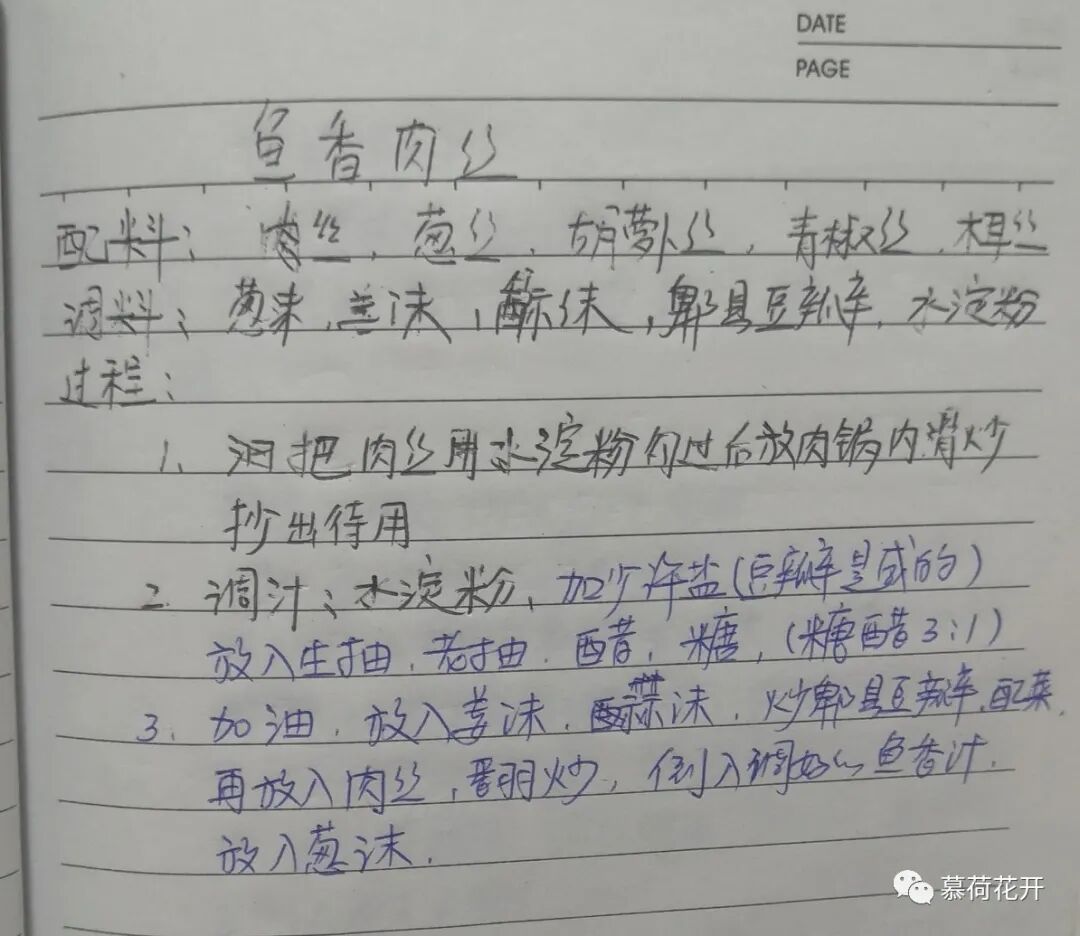 DATE
PAGE
鱼香肉丝
配料：肉丝，葱丝，胡萝卜丝，青椒丝，木耳丝
调料：葱末，姜沫，蒜沫，郫县豆瓣，水淀粉
过程：
1. 把肉丝用水淀粉匀过后放肉锅内滑炒
抄出待用
2. 调汁：水淀粉，加少许盐（豆瓣是咸的）
放入生抽，老抽，醋，糖，（糖醋3:1）
3. 加油，放入姜沫，蒜沫，炒郫县豆瓣，配菜，
再放入肉丝，翻炒，倒入调好的鱼香汁．
放入葱沫．
慕荷花开